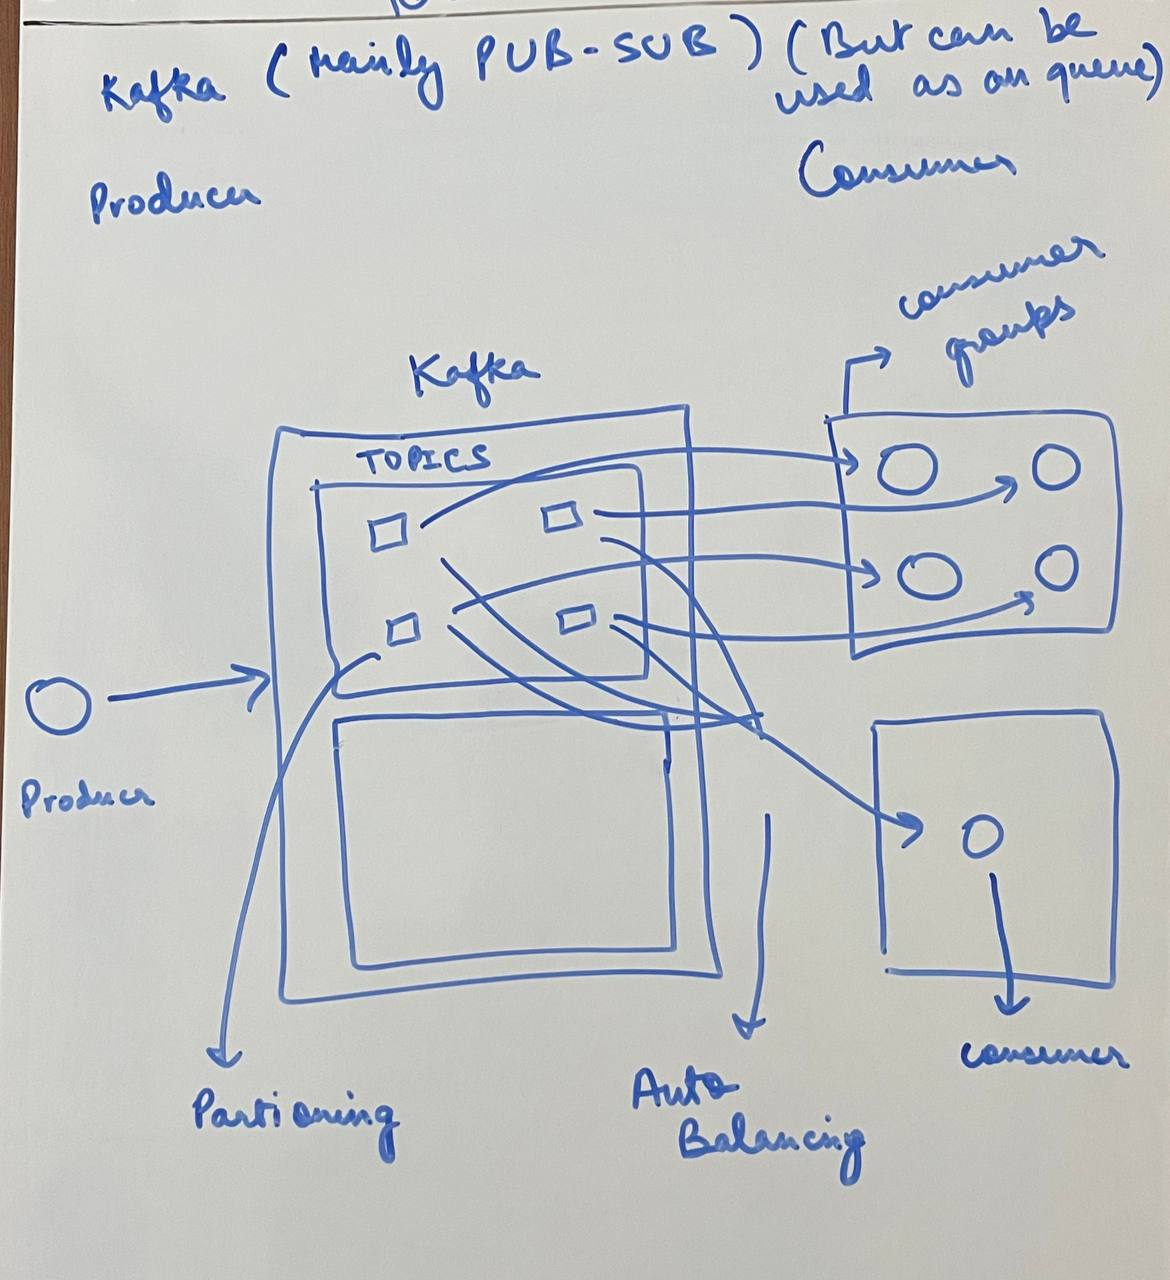 Kafka (Mainly PUB-SUB) (But can be
used as an queue)
Producer
Consumer
consumer
groups
Kafka
TOPICS
Producer
consumer
Partioning
Auto
Balancing